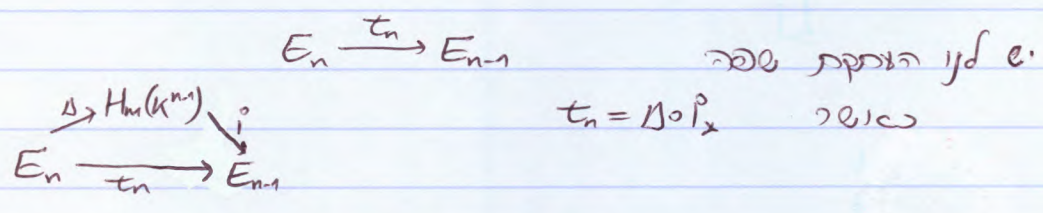 יש לנו העתקת שפה
E_n \xrightarrow{t_n} E_{n-1}
כאשר t_n = Δ∘i_*
E_n \xrightarrow{Δ} H_m(K^{n-1}) \xrightarrow{i} E_{n-1}
E_n \xrightarrow{t_n} E_{n-1}